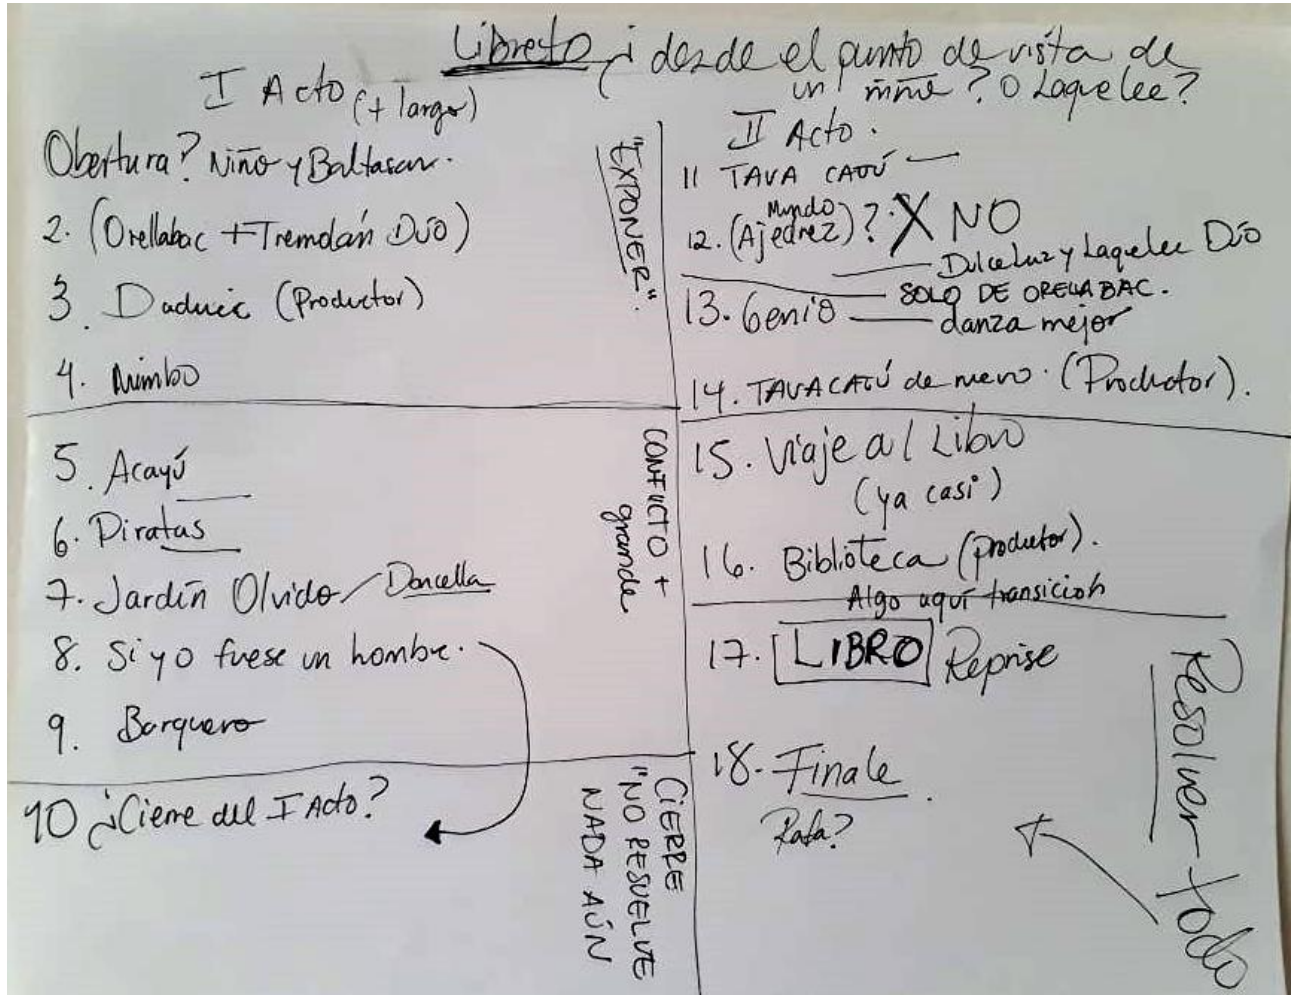 Libreto ¿desde el punto de vista de
un niño? O Laquelee?
I Acto (+ largo)
Obertura? Niño y Baltasar.
2. (Orellabac + Tremolán Dúo)
3. (Productor)
4. Nimbo
"EXPONER".
5. Acayú
6. Piratas
7. Jardín Olvido / Doncella
8. Si yo fuese un hombre.
9. Barquero
CONFLICTO +
grande
10 ¿Cierre del I Acto?
CIERRE
"NO RESUELVE
NADA AÚN
II Acto.
11 TAVA CATÚ
12. (Mundo
Ajedrez)? X NO
Dulceluz y Laquelee Dúo
SOLO DE ORELLABAC.
13. Genio danza mejor
14. TAVACATÚ de nuevo. (Productor).
15. Viaje al Libro
(ya casi)
16. Biblioteca (productor).
Algo aquí transición
17. LIBRO Reprise
18. Finale
Rafa?
Resolver todo